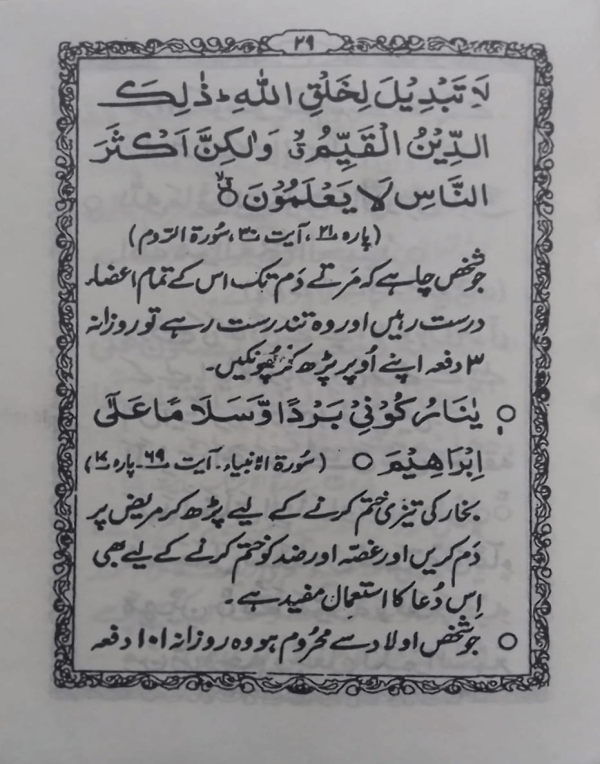 ۲۹
لَا تَبْدِیْلَ لِخَلْقِ اللّٰہِ ؕ ذٰلِکَ
الدِّیْنُ الْقَیِّمُ ۙ وَلٰکِنَّ اَکْثَرَ
النَّاسِ لَا یَعْلَمُوْنَ ۝
(پارہ ۲۱، آیت ۳۰، سُورۃ الرّوم)
جو شخص چاہے کہ مَرتے دَم تک اس کے تمام اعضاء
درست رہیں اور وہ تندرست رہے تو روزانہ
۳ دفعہ اپنے اُوپر پڑھ کر پُھونکیں۔
○ یٰنَارُ کُوْنِیْ بَرْدًا وَّ سَلَامًا عَلٰٓی
اِبْرَاھِیْمَ ○ (سُورۃ الانبیاء۔ آیت ۶۹۔ پارہ ۱۷)
بخار کی تیزی ختم کرنے کے لیے پڑھ کر مریض پر
دَم کریں اور غصّہ اور ضد کو ختم کرنے کے لیے بھی
اِس دُعا کا استعمال مفید ہے۔
○ جو شخص اولاد سے محرُوم ہو وہ روزانہ ۱۰۱ دفعہ